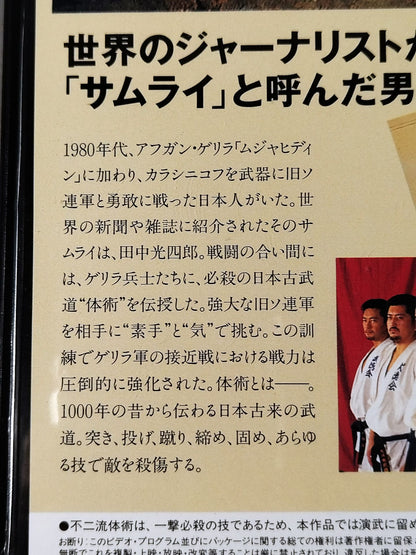 世界のジャーナリストが
「サムライ」と呼んだ男
1980年代、アフガン・ゲリラ「ムジャヒディ
ン」に加わり、カラシニコフを武器に旧ソ
連軍と勇敢に戦った日本人がいた。世
界の新聞や雑誌に紹介されたそのサ
ムライは、田中光四郎。戦闘の合い間に
は、ゲリラ兵士たちに、必殺の日本古武
道“体術”を伝授した。強大な旧ソ連軍
を相手に“素手”と“気”で挑む。この訓
練でゲリラ軍の接近戦における戦力は
圧倒的に強化された。体術とは——。
1000年の昔から伝わる日本古来の武
道。突き、投げ、蹴り、締め、固め、あらゆ
る技で敵を殺傷する。
●不二流体術は、一撃必殺の技であるため、本作品では演武に留め
お断り:このビデオ・プログラム並びにパッケージに関する総ての権利は著作権者に留保
無断でこれを複製・上映・放映・改変等することは厳に禁止されており、違反した場合は